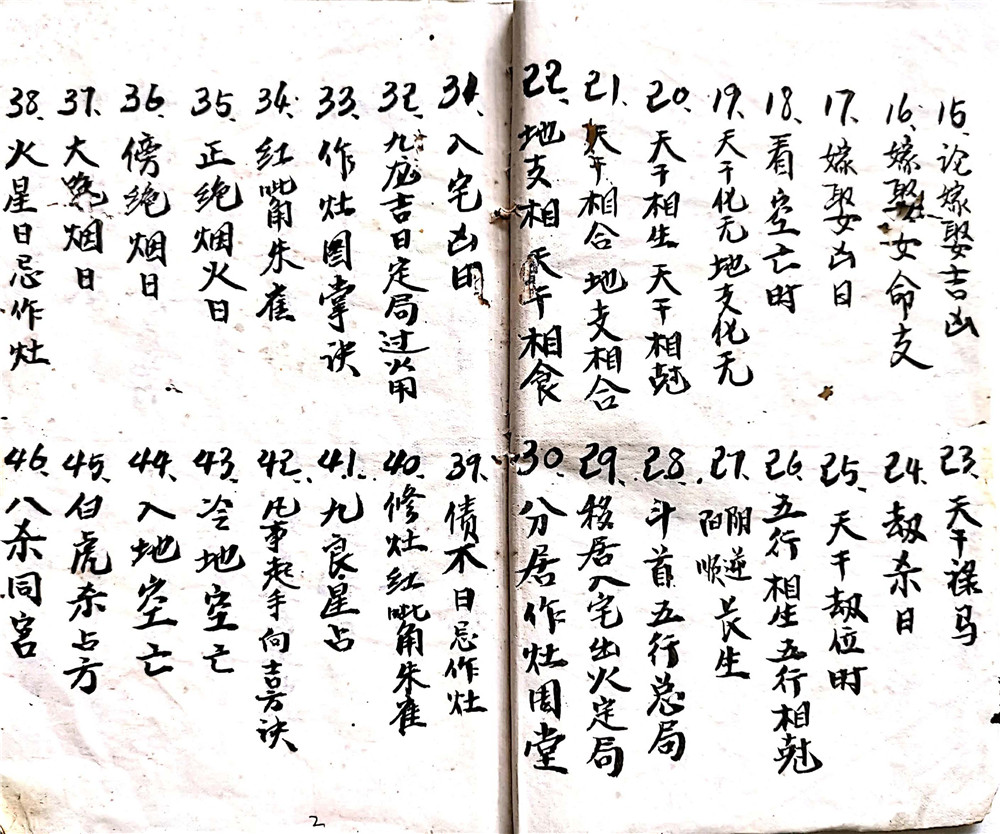 15、论嫁娶吉凶
16、嫁娶女命支
17、嫁娶凶日
18、看空亡时
19、天干化无地支化无
20、天干相生天干相尅
21、天干相合地支相合
22、地支相天干相食
23、天干禄马
24、劫杀日
25、天干劫位时
26、五行相生五行相尅
27、阴逆阳顺长生
28、斗首五行总局
29、移居入宅出火定局
30、分居作灶周堂
31、入宅凶日
32、九龙吉日定局过火角
33、作灶图掌诀
34、红呲角朱雀
35、正绝烟火日
36、傍绝烟日
37、大绝烟日
38、火星日忌作灶
39、债不日忌作灶
40、修灶红呲角朱雀
41、九良星占
42、凡事起手向喜方诀
43、冷地空亡
44、入地空亡
45、白虎杀占方
46、八杀同宫
2